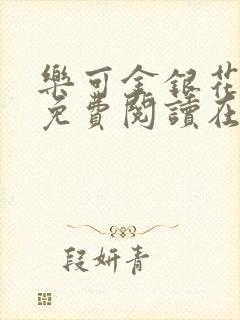 樂可金銀花
免費閱讀在
段妍青